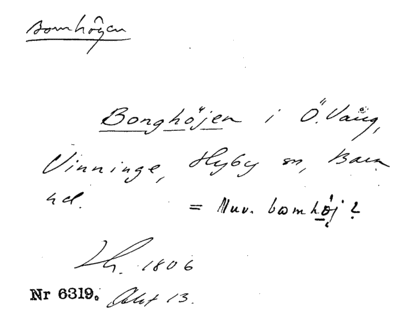 Bomhögen
Bonghöjen i Ö. Vång,
Vinninge, Hyby sn, Bara
hd.
= Nuv. bomhöj?
Lh. 1806
Nr 6319. Akt 13.